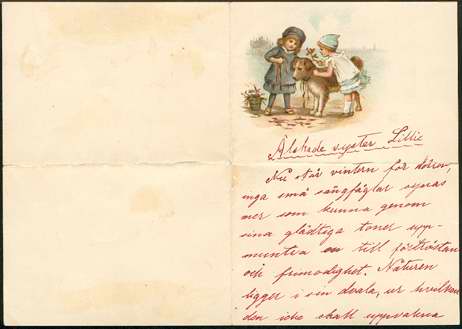 Älskade syster Lillie
Nu står vintern för dörren,
inga små sångfåglar synas
mer som kunna genom
sina glädtiga toner upp-
muntra en till förtröstan
och frimodighet. Naturen
ligger i sin dvala, ur hvilken
den icke skall uppvakna